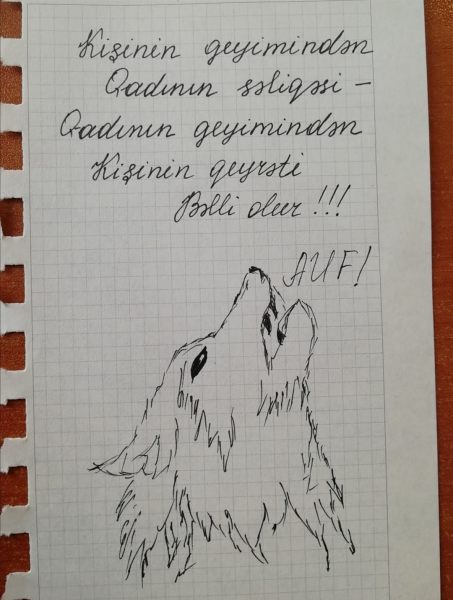 Kişinin geyimindən
Qadının səliqəsi –
Qadının geyimindən
Kişinin qeyrəti
Bəlli olur !!!
AUF!